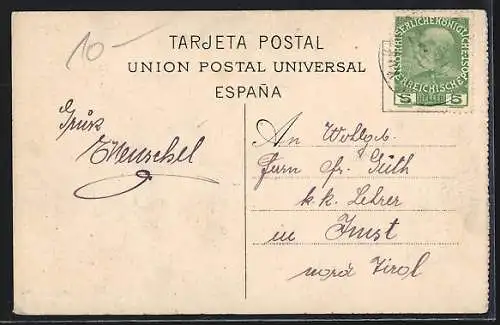 10 —
TARJETA POSTAL
UNION POSTAL UNIVERSAL
ESPAÑA
KAISERLICHE KÖNIGLICHE
ÖSTERREICHISCHE POST
5 HELLER 5
Gruß
Henschel
An Wohlgeb.
Herrn Fr. Güth
k. k. Lehrer
in Imst
nord Tirol